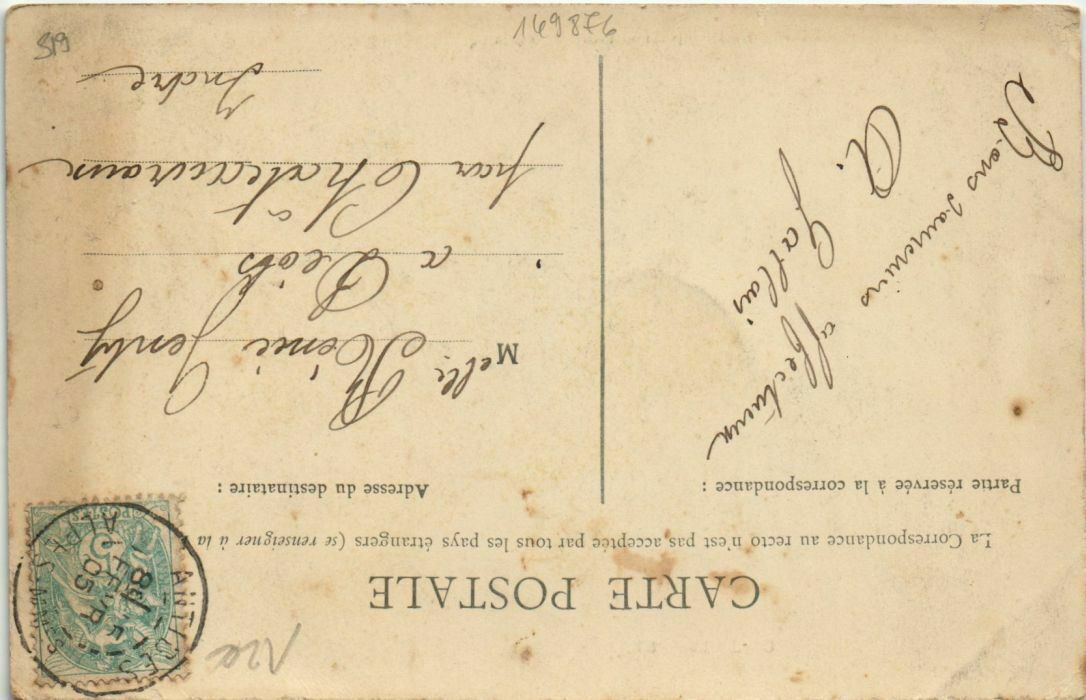 CARTE POSTALE
La Correspondance au recto n'est pas acceptée par tous les pays étrangers (se renseigner à la
Partie réservée à la correspondance :
Adresse du destinataire :
Bons souvenirs
affectueux
A. Gallais
Melle
Genty
à Déols
par Chateauroux
Indre
ANTIBES
ALPES-MMES
8E
15
FEVR
05
POSTES
149876
519